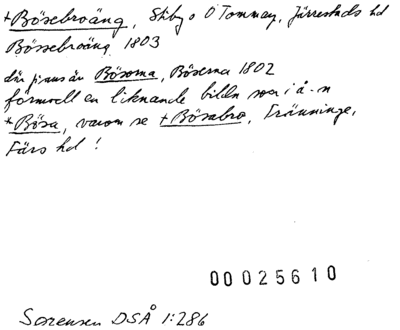 +Bösebroäng, Stiby o Ö Tommarp, Järrestads hd
Bössebroäng 1803
där jämsän Bösorna, Böserna 1802
förmodl en liknande bildn som i å-n
*Bösa, varom se +Bösabro, Tranninge,
Färs hd!
00025610
Sorensen DSÅ 1:286